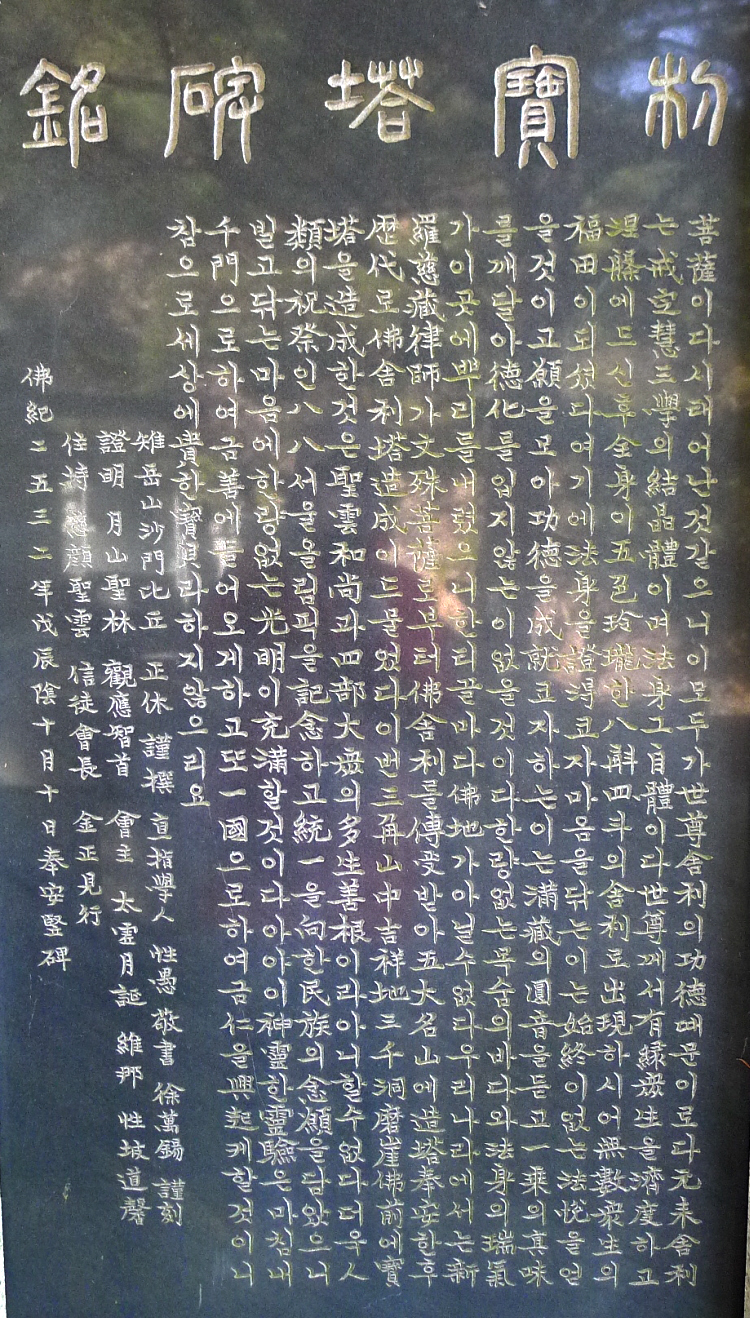 利寶塔碑銘
菩薩이다시태어난것같으니이모두가世尊舍利의功德때문이로다元來舍利
는戒定慧三學의結晶體이며法身그自體이다世尊께서有緣衆生을濟度하고
涅槃에드신후全身이五色玲瓏한八斛四斗의舍利로出現하시어無數衆生의
福田이되셨다여기에法身을證得코자마음을닦는이는始終이없는法悅을얻
을것이고願을모아功德을成就코자하는이는滿藏의圓音을듣고一乘의眞味
를깨달아德化를입지않는이없을것이다한량없는목숨의바다와法身의瑞氣
가이곳에뿌리를내렸으니한티끌마다佛地가아닐수없다우리나라에서는新
羅慈藏律師가文殊菩薩로부터佛舍利를傳受받아五大名山에造塔奉安한후
歷代로佛舍利塔造成이드물었다이번三角山中吉祥地三千洞磨崖佛前에寶
塔을造成한것은聖雲和尙과四部大衆의多生善根이라아니할수없다더욱人
類의祝祭인八八서울올림픽을記念하고統一을向한民族의念願을담았으니
빌고닦는마음에한량없는光明이充滿할것이다아아이神靈한靈驗은마침내
千門으로하여금善에들어오게하고또一國으로하여금仁을興起케할것이니
참으로세상에貴한寶貝라하지않으리요
雉岳山沙門比丘 正休 謹撰 直指學人 性愚 敬書 徐萬錫 謹刻
證明 月山聖林 觀應智首 會主 太靈月誕 維那 性坡道馨
住持 顔聖雲 信徒會長 金正見行
佛紀二五三二年戊辰陰十月十日奉安竪碑